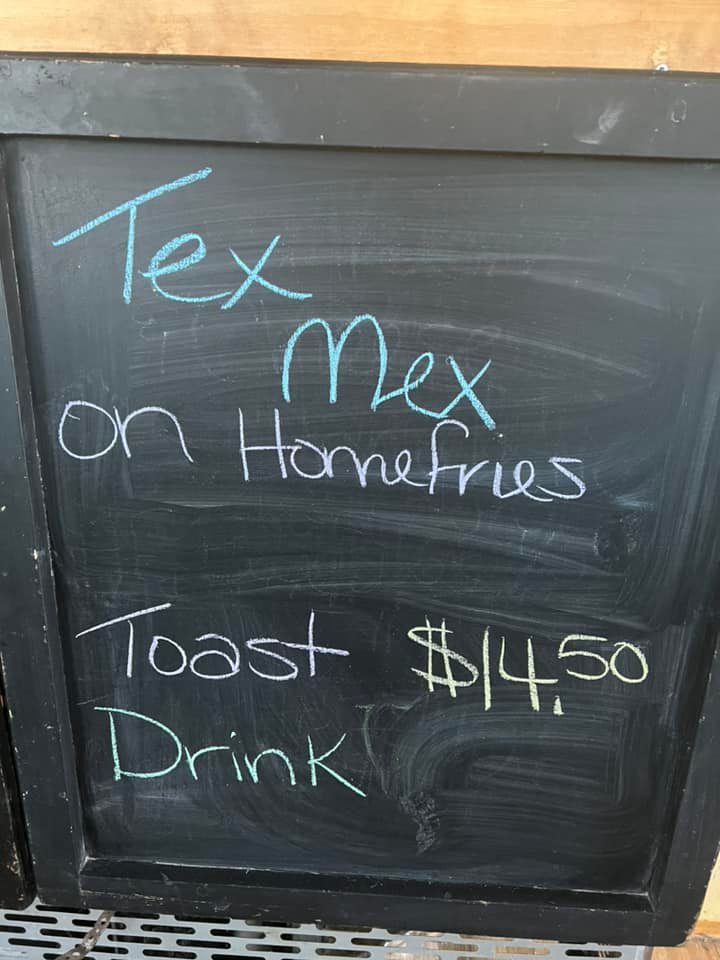 Tex
Mex
on Homefries
Toast $14.50
Drink